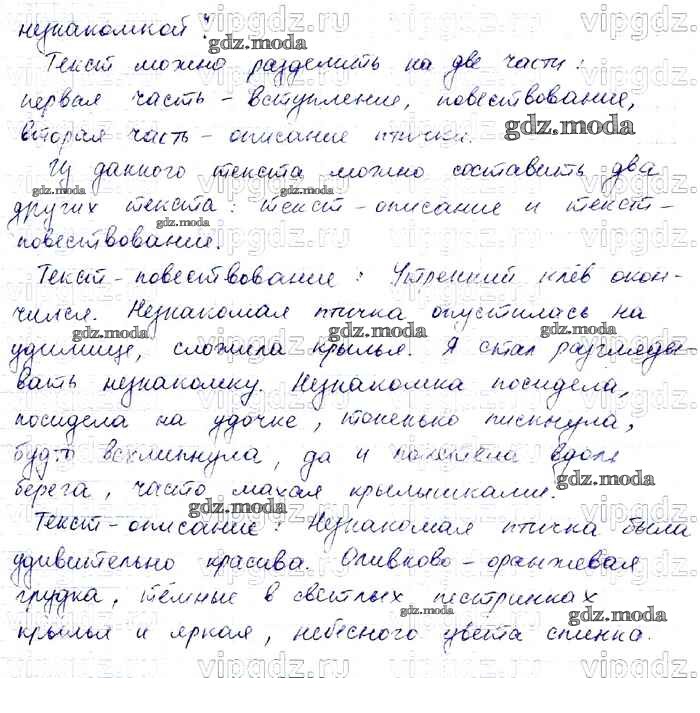 незнакомкой".
Текст можно разделить на две части:
первая часть - вступление, повествование,
вторая часть - описание птички.
Из данного текста можно составить два
других текста: текст-описание и текст-
повествование.
Текст-повествование: Утренний клёв окон-
чился. Незнакомая птичка опустилась на
удилище, сложила крылья. Я стал разгляды-
вать незнакомку. Незнакомка посидела,
посидела на удочке, тоненько пискнула,
будто всхлипнула, да и полетела вдоль
берега, часто махая крылышками.
Текст-описание: Незнакомая птичка была
удивительно красива. Оливково-оранжевая
грудка, тёмные в светлых пестринках
крылья и яркая, небесного цвета спинка.
vipgdz.ru
gdz.moda